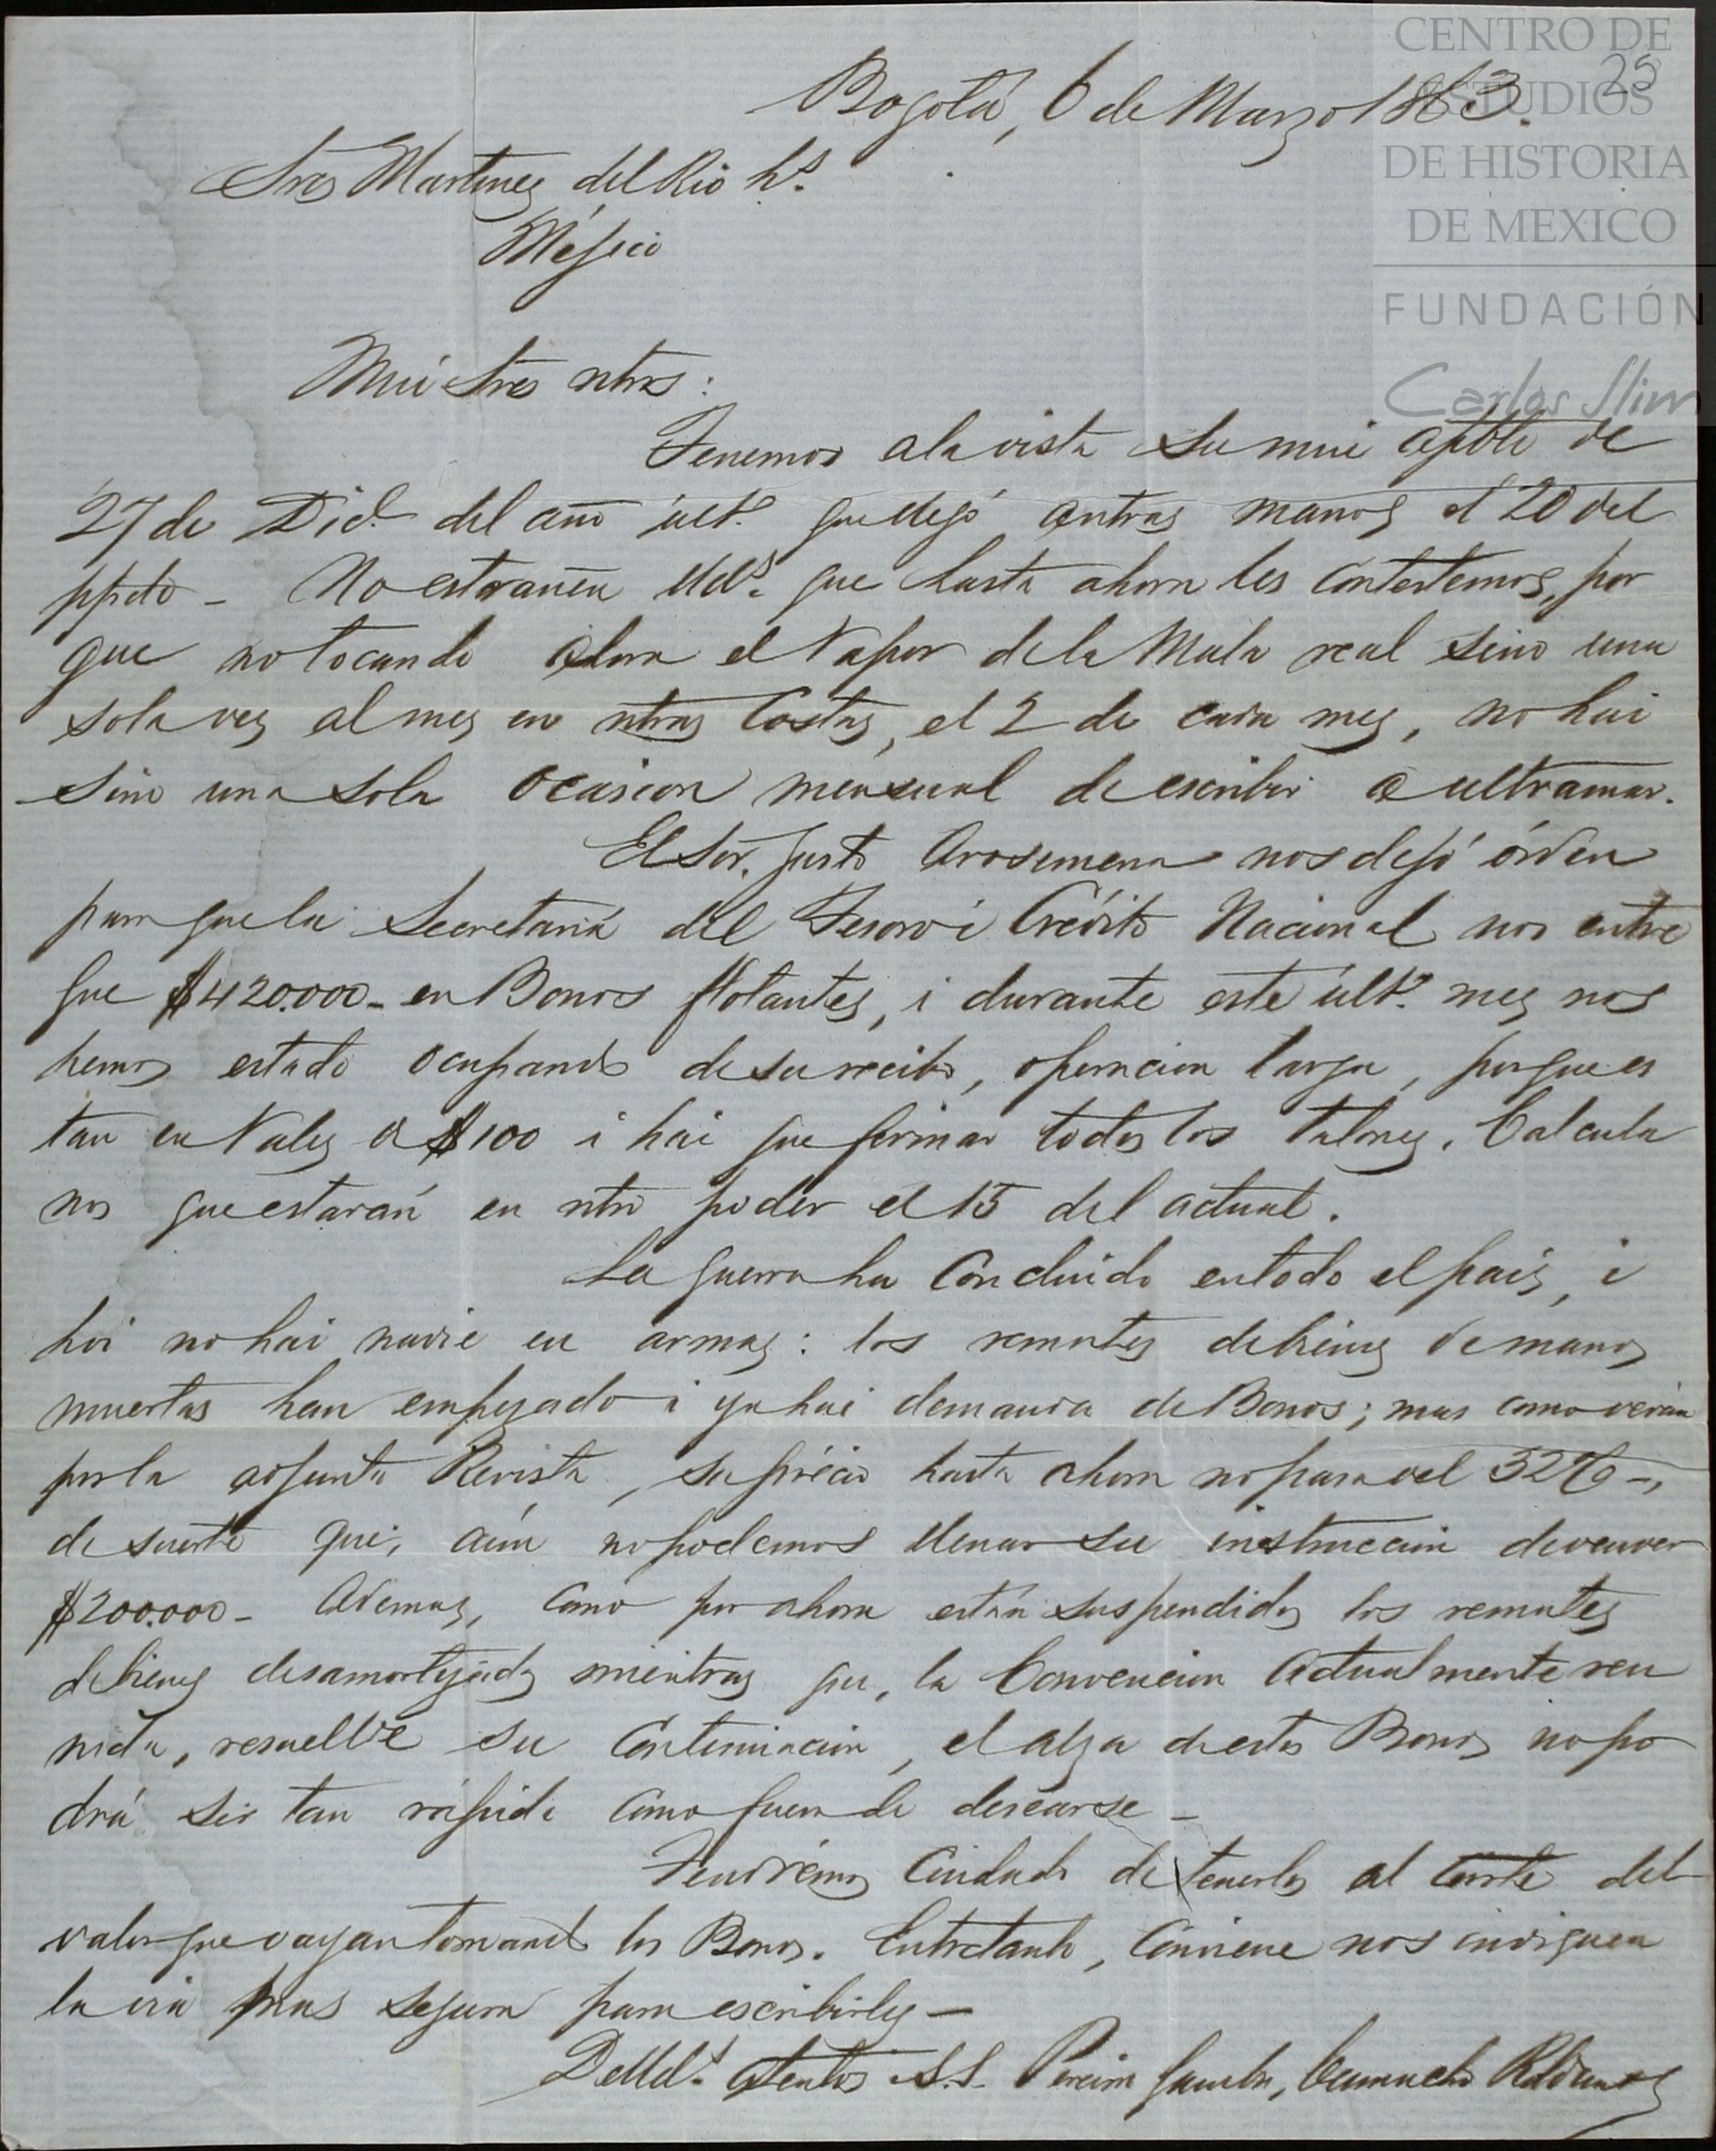 CENTRO DE
ESTUDIOS
DE HISTORIA
DE MEXICO
FUNDACIÓN
Carlos Slim
25
Bogotá, 6 de Marzo 1863.
Sres Martinez del Rio hs.
Méjico
Mui Sres ntros:
Tenemos a la vista su mui apble de
27 de Dice. del año últo. que llegó a ntras manos el 20 del
ppdo - No estrañen Uds. que hasta ahora les contestemos, por
que no tocando ahora el Vapor de la Mala real sino una
sola vez al mes en ntras Costas, el 2 de cada mes, no hai
sino una sola ocasion mensual de escribir a ultramar.
El Sor. Justo Arosemena nos dejó órden
para que la Secretaría del Tesoro i Crédito Nacional nos entre
gue $420.000- en Bonos flotantes, i durante este últo. mes nos
hemos estado ocupando de su recibo, operacion larga, porque es
tan en Vales a $100 i hai que firmar todos los talones. Calcula
mos que estarán en ntro poder el 15 del actual.
La guerra ha concluido en todo el pais, i
hoi no hai nadie en armas: los remates de bienes de manos
muertas han empezado i ya hai demanda de Bonos; mas como verán
por la adjunta Revista, su précio hasta ahora no pasa del 32%-,
de suerte que, aún no podemos llenar su instruccion de vender
$200.000- Ademas, como por ahora están suspendidos los remates
de bienes desamortizados mientras que, la Convencion actualmente reu
nida, resuelve su continuacion, el alza de estos Bonos no po
drá ser tan rápida como fuera de desearse -
Tendrémos cuidado de tenerlos al corte del
valor que vayan tomando los Bonos. Entretanto, conviene nos indiquen
la via mas segura para escribirles -
De Uds. atentos S.S. Pereira Gamba, Camacho Roldan &